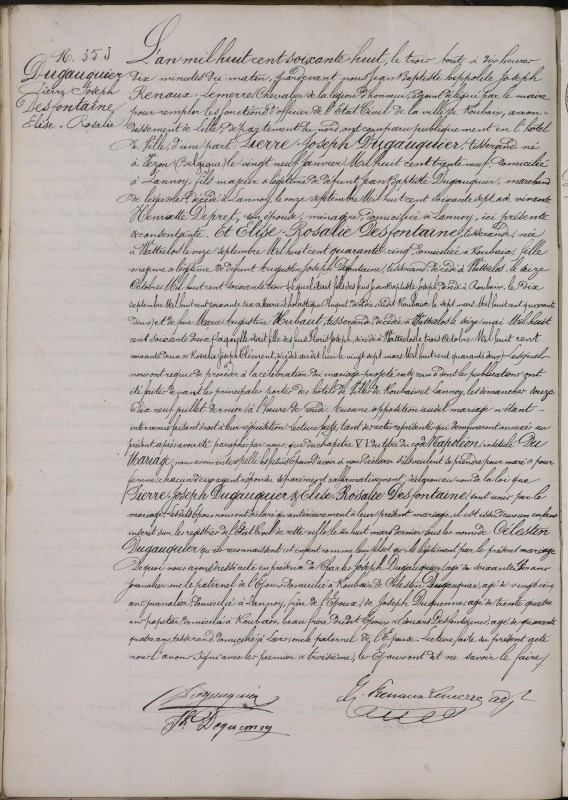 N. 353
Dugauquier
Pierre Joseph
Desfontaine
Élise-Rosalie
L'an mil huit cent soixante huit, le trois août, à dix heures
dix minutes du matin, pardevant nous Jean Baptiste hippolite Joseph
Renaux-Lemerre Chevalier de la légion d'honneur, adjoint délégué par le maire
pour remplir les fonctions d'officier de l'État Civil de la ville de Roubaix, arron-
dissement de Lille, département du nord, ont comparu publiquement en l'hôtel
de Ville, d'une part Pierre-Joseph Dugauquier, tisserand, né
à (Belgique) le vingt neuf janvier Mil huit cent trente neuf, domicilié
à Lannoy, fils majeur & légitime de défunt Jean Baptiste Dugauquier, marchand
de légumes, décédé à Lannoy, le onze septembre Mil huit cent soixante sept & de vivante
Henriette Depret, son épouse, ménagère, domiciliée à Lannoy, ici présente
& consentante. Et Élise-Rosalie Desfontaine, tisserande, née
à Wattrelos le onze septembre Mil huit cent quarante cinq, domiciliée à Roubaix, fille
majeure & légitime de défunt Augustin Joseph Desfontaine, tisserand, décédé à Wattrelos, le seize
Octobre Mil huit cent soixante trois lequel était fils des feus Jean Baptiste Joseph, décédé à Roubaix, le dix
septembre Mil huit cent soixante six & Marie Scholastique décédée audit Roubaix, le sept mars Mil huit cent quarante
deux) et de feue Marie Augustine Hubaut, tisserande, décédée à Wattrelos le seize mai Mil huit
cent soixante deux (laquelle était fille des feus Joseph, décédé à Wattrelos le trois Octobre Mil huit cent
& Rosalie Joseph Clément, décédée audit lieu le vingt sept mars Mil huit cent quarante deux). Lesquels
nous ont requis de procéder à la célébration du mariage projeté entre eux & dont les publications ont
été faites devant les principales portes des hôtels de Ville de Roubaix et Lannoy, les dimanches douze
& dix neuf juillet dernier à l'heure de midi. Aucune opposition audit mariage n'étant
intervenue, faisant droit à leur réquisition Lecture faite, tant des actes représentés qui demeureront annexés au
présent après avoir été paraphés par nous, que du Chapitre VI du titre du code Napoléon, intitulé Du
Mariage, nous avons interpellé les futurs Époux d'avoir à nous déclarer s'ils veulent se prendre pour mari & pour
femme, chacun d'eux ayant répondu séparément & affirmativement, déclarons au nom de la loi que
Pierre-Joseph Dugauquier & Élise-Rosalie Desfontaine, sont unis par le
mariage. & lesdits Époux nous ont déclaré qu'antérieurement à leur présent mariage, il est issu d'eux un enfant
inscrit sur les registres de l'État Civil de cette ville, le dix huit mars dernier sous les noms de Célestin
Dugauquier qu'ils reconnaissent cet enfant comme leur & qu'ils légitiment par le présent mariage
De quoi nous avons dressé acte en présence de Charles Joseph Dugauquier, âgé de soixante ans
journalier oncle paternel de l'Époux, domicilié à Roubaix, de Célestin Dugauquier, âgé de vingt cinq
ans, journalier, domicilié à Lannoy, frère de l'Époux, de Joseph Duquenne, âgé de trente quatre
ans domicilié à Roubaix, beau frère dudit Époux & Louis Desfontaine, âgé de quarante
quatre ans, tisserand domicilié à Leers, oncle paternel de l'Épouse. Lecture faite du présent acte
nous l'avons signé avec les premier & troisième, les Époux ont dit ne savoir le faire/.
Dugauquier
Jh Duquenne
H. Renaux Lemerre adjt